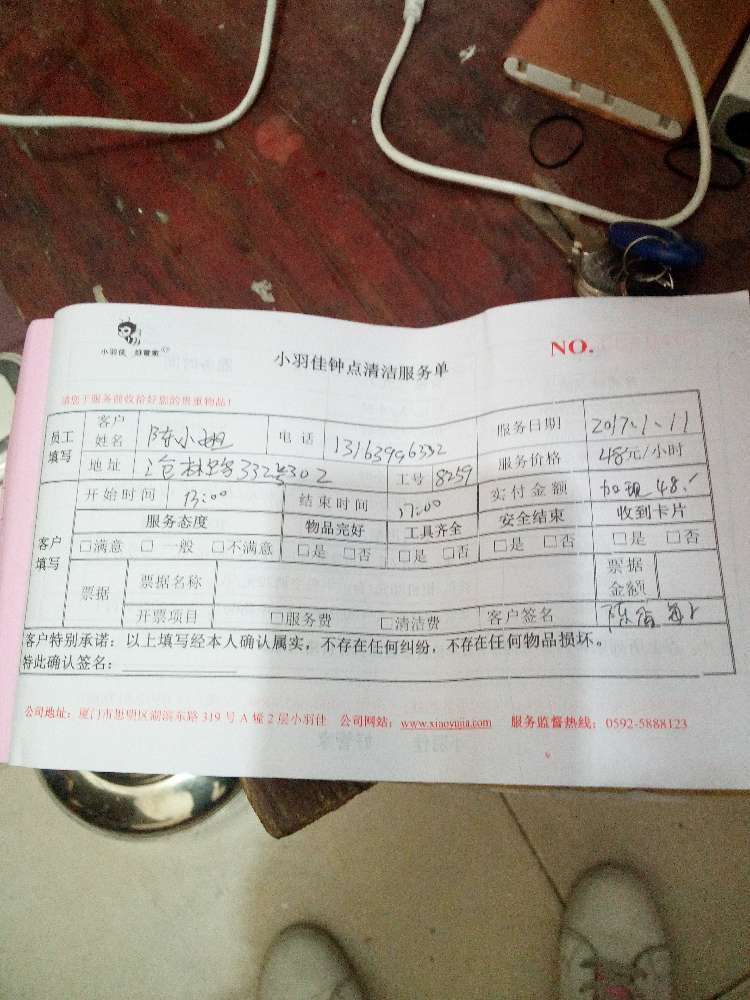 小羽佳 好管家
小羽佳钟点清洁服务单
NO.
请您于服务前收拾好您的贵重物品!
员工填写 客户姓名 陈小姐 电话 13163996332 服务日期 2017.1.11
地址 沧林路332号302 工号 8259 服务价格 48元/小时
客户填写 开始时间 13:00 结束时间 17:00 实付金额 加现48.
服务态度 物品完好 工具齐全 安全结束 收到卡片
□满意 □一般 □不满意 □是 □否 □是 □否 □是 □否 □是 □否
票据 票据名称 票据金额
开票项目 □服务费 □清洁费 客户签名 陈
客户特别承诺：以上填写经本人确认属实，不存在任何纠纷，不存在任何物品损坏。
特此确认签名：
公司地址：厦门市思明区湖滨东路 319 号 A 幢 2 层小羽佳 公司网站：www.xiaoyujia.com 服务监督热线：0592-5888123